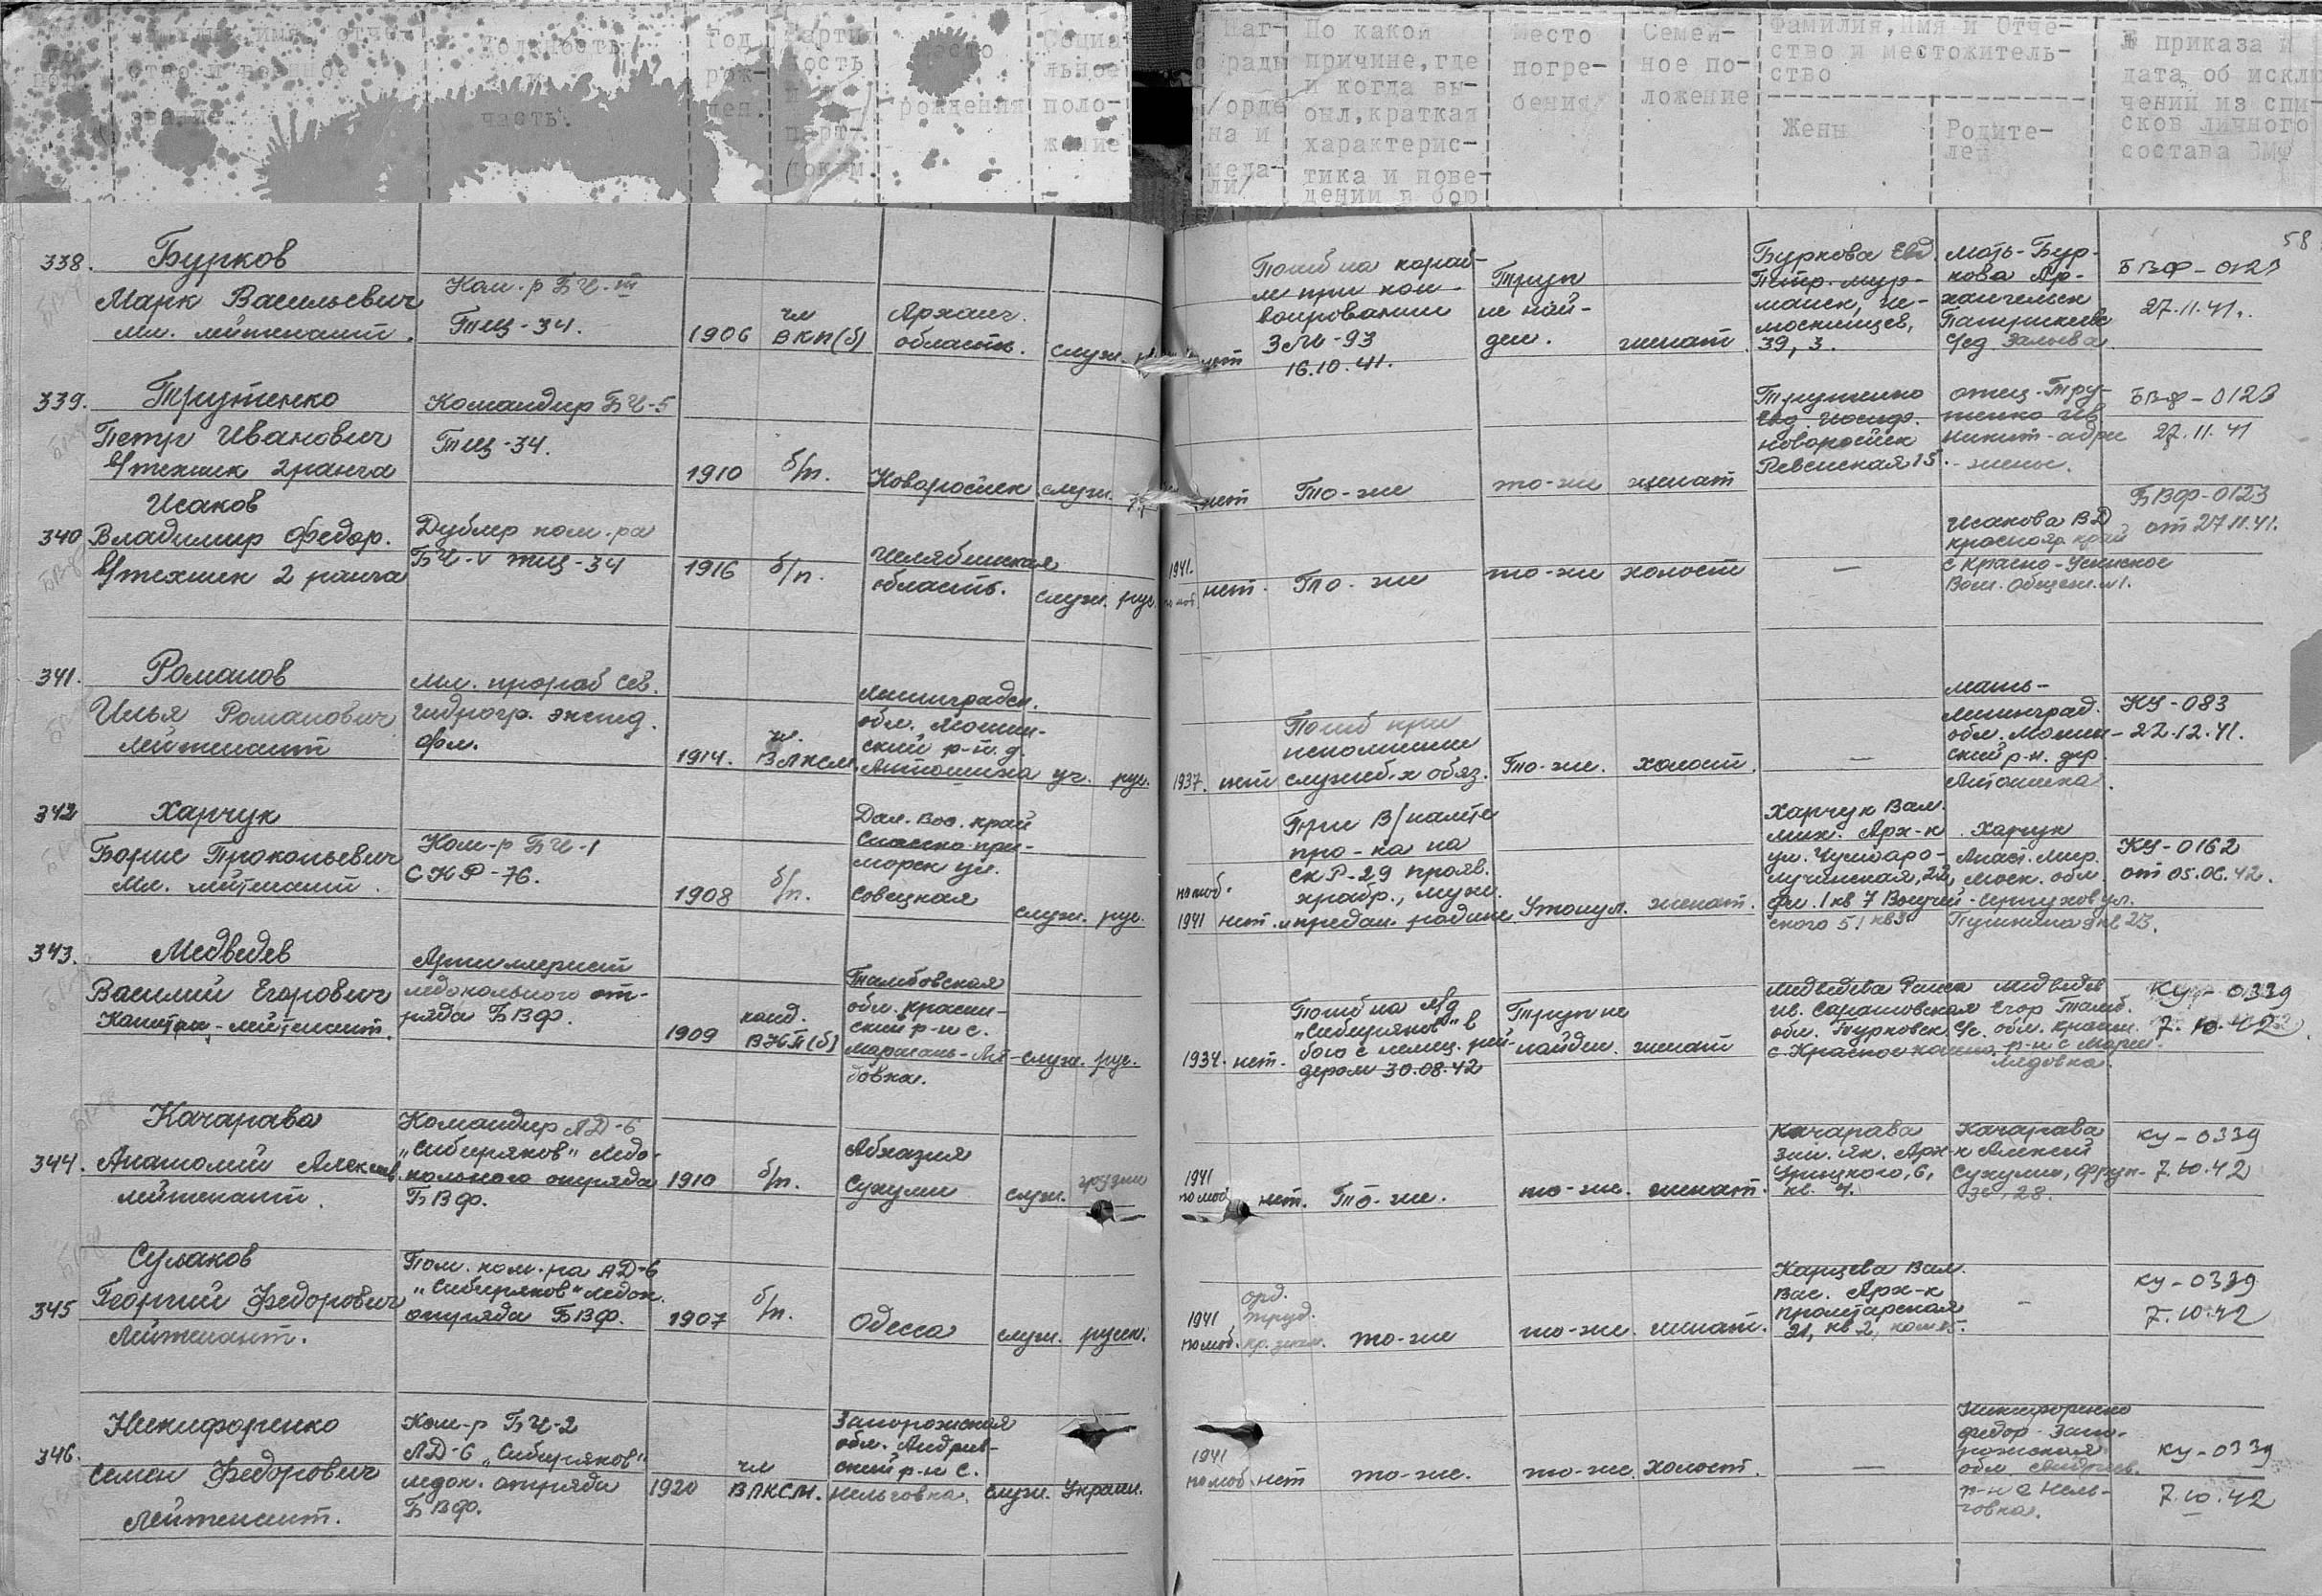 отчест-
ство и военное
звание
Должность
и
часть.
Год
рож-
ден.
Парти
ность
и
парт-
Место
рождения
Социа
льное
поло-
жение
Наг-
рады
/орде
на и
меда-
ли/
По какой
причине, где
и когда вы-
был, краткая
характерис-
тика и пове-
дении в бою
Место
погре-
бения
Семей-
ное по-
ложение
Фамилия, имя и Отче-
ство и местожитель-
ство
Жены
Родите-
лей
№ приказа и
дата об исклю
чении из спи-
сков личного
состава ВМФ
58
338.
Бурков
Марк Васильевич
мл. лейтенант.
Ком-р БЧ-III
Тщ-34.
1906
чл
ВКП(б)
Арханг.
область.
служ.
нет
Погиб на кораб-
ле при кон-
воировании
16.10.41.
Труп
не най-
ден.
женат.
Буркова Евд.
Петр. Мур-
манск, Че-
люскинцев,
39, 3.
мать-Бур-
кова Ар-
хангельск
БВФ-0123
27.11.41.
339.
Трутенко
Петр Иванович
в/техник 2 ранга
Командир БЧ-5
Тщ-34.
1910
б/п.
Новоросийск
служ.
нет
То-же
то-же
женат
Трутенко
Евд. Иосиф.
Новоросийск
Ревенская 15.
отец-Тру-
тенко Ив.
Никит-адрес
-жены.
БВФ-0123
27.11.41
340
Исаков
Владимир Федор.
в/техник 2 ранга
Дублер ком-ра
БЧ-V тщ-34
1916
б/п.
Челябинская
область.
служ. рус.
1941.
по моб.
нет.
То-же
то-же
холост
—
Исакова В.Д
краснояр край
Вош. Общеж. №1.
БВФ-0123
от 27.11.41.
341.
Романов
Илья Романович
лейтенант
мл. прораб Сев.
гидрогр. экспед.
Фл.
1914.
чл.
ВЛКСМ.
Ленинградск.
обл., Мошин-
ский р-н. д.
Антошиха
уч. рус.
1937.
нет
Погиб при
исполнении
служеб-х обяз.
То-же.
холост.
—
мать-
Ленинград.
обл. Мошин-
ский р-н. дер.
КУ-083
22.12.41.
342
Харчук
Борис Прокопьевич
Мл. лейтенант.
Ком-р БЧ-1
СКР-76.
1908
б/п.
Дал. Вос. край
морск ул.
Совецкая
служ. рус.
по моб.
1941
нет.
При В/налете
пр-ка на
СКР-29 прояв.
храбр., муж.
и предан. родине
Утонул.
женат.
Харчук Вал.
мих. Арх-к
ул. Чумбаро-
лучинская, 22,
Харчук
моск. обл.
Пушкина 9 кв 23.
КУ-0162
от 05.06.42.
343.
Медведев
Василий Егорович
Капитан-лейтенант.
Артиллерист
ледокольного от-
ряда БВФ.
1909
канд.
ВКП(б)
Тамбовская
обл. красин-
ский р-н с.
служ. рус.
1934.
нет.
Погиб на л/д
„Сибиряков" в
бою с немец. рей-
дером 30.08.42
Труп не
найден.
женат
Медведева Раиса
Ив. Саратовская
обл. Турковск
Медведев
Егор Тамб.
КУ-0339
7.10.42
344.
Качарава
Анатолий Алексеев.
лейтенант.
Командир ЛД-6
„Сибиряков" Ледо-
кольного отряда
БВФ.
1910
б/п.
Абхазия
Сухуми
служ.
грузин
1941
по моб
нет.
То-же.
то-же.
женат.
Качарава
Зин. Як. Арх-к
Урицкого, 6,
кв. 4.
Качарава
Алексей
Сухуми, Фрун-
зе, 28.
КУ-0339
7.10.42
345
Сулаков
Георгий Федорович
Лейтенант.
Пом. ком-ра ЛД-6
„Сибиряков" ледок.
отряда БВФ.
1907
б/п.
Одесса
служ. русск.
1941
по моб.
орд.
труд.
кр. знам.
то-же
то-же.
женат.
Карцева Вал.
Вас. Арх-к
Пролетарская
21, кв 2, ком 15.
-
КУ-0339
7.10.42
346.
Никифоренко
Семен Федорович
Лейтенант.
Ком-р БЧ-2
ЛД-6 „Сибиряков"
ледок. отряда
БВФ.
1920
чл
ВЛКСМ.
Запорожская
обл. Андреев-
ский р-н с.
Нельговка.
служ. Украин.
1941
по моб.
нет
то-же.
то-же.
холост.
—
Никифоренко
Федор Запо-
рожская
обл. Андреев.
р-н с Нель-
говка.
КУ-0339
7.10.42